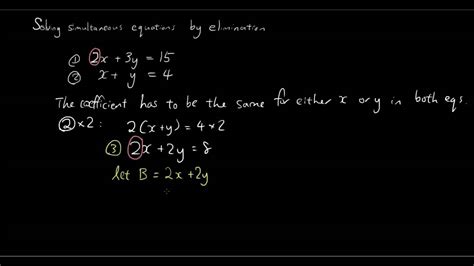 Solving simultaneous equations by elimination
① 2x + 3y = 15
② x + y = 4
The coefficient has to be the same for either x or y in both eqs.
② × 2: 2(x+y) = 4 × 2
③ 2x + 2y = 8
let B = 2x + 2y